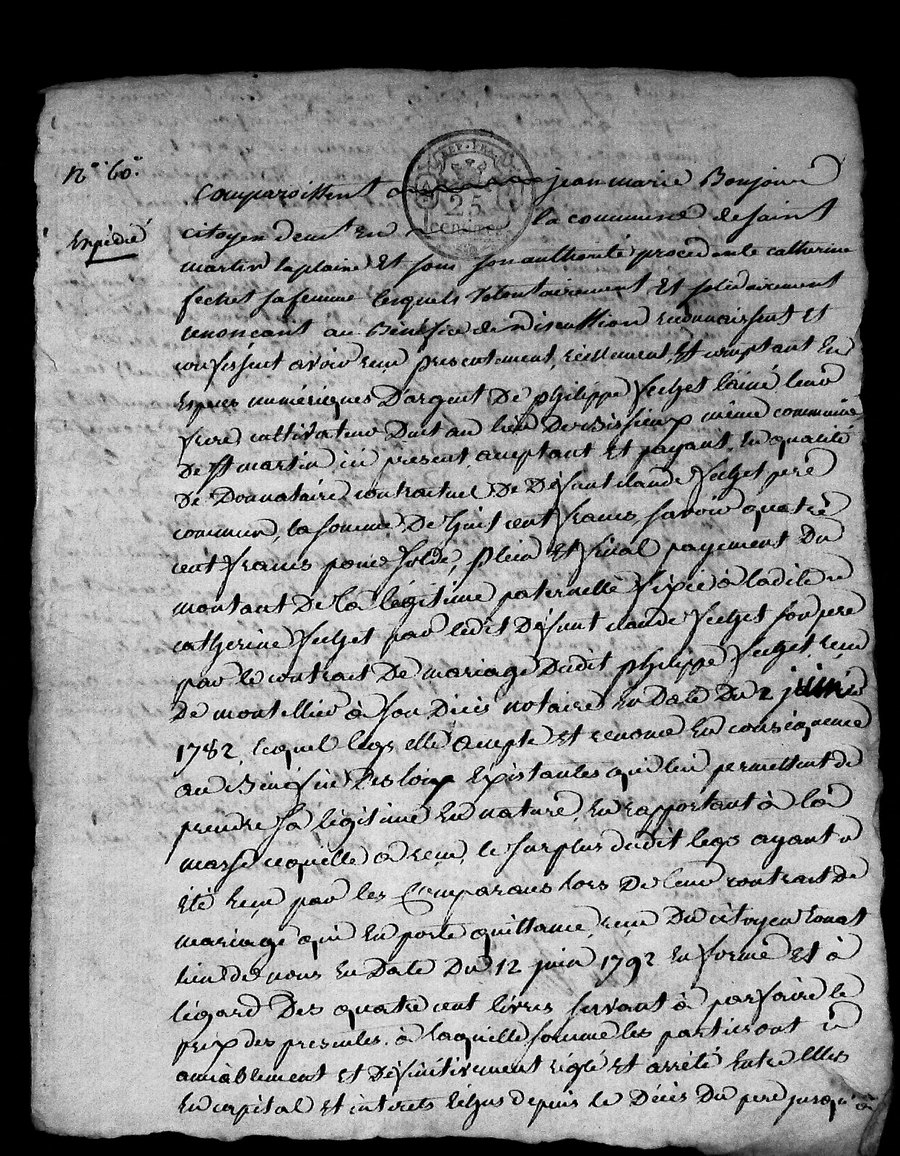 n.° 60.
Expédié
REP. FRA.
25
CENTIMES
Comparoissent jean marie Bonjour
citoyen demt. en la commune de saint
martin laplaine Et sous son authorité procedente catherine
fechet sa femme lesquels volontairement Et solidairement
renonçant au Bénéfice de Discussion reconnaissent Et
confessent avoir reçu présentement, réellement, Et comptant En
Espèces numériques D'argent De philippe fechet lainé leur
frere cultivateur Du même commune
De St martin ici présent, aceptant Et payant En qualité
De Donnataire contractuel De Défunt claude fechet pere
commun, la somme De huit cent francs, savoir quatre
cent francs pour solde, plein Et final payement Du
montant De la légitime paternelle fixée à ladite
catherine fechet par ledit Défunt claude fechet son pere
par le contrat De mariage Dudit philippe fechet, reçu
De montellier à son Décès notaire En Date Du 2 juin
1782, lequel legs elle accepte Et renonce En conséquence
au Bénéfice Des loix Existantes qui lui permettent de
prendre sa légitime En nature, En rapportant à la
masse cequelle a reçu, le surplus dudit legs ayant
été reçu par les Comparans lors De leur contrat De
mariage qui En porte quittance, reçu Du citoyen
lieu de nous En Date Du 12 juin 1792 En forme Et à
légard Des quatre cent livres servant à parfaire le
prix des presentes, à laquelle somme les parties ont
amiablement Et Définitivement réglé Et arrêté Entre Elles
En capital Et interets Echus depuis le Décès Du pere jusqu'à